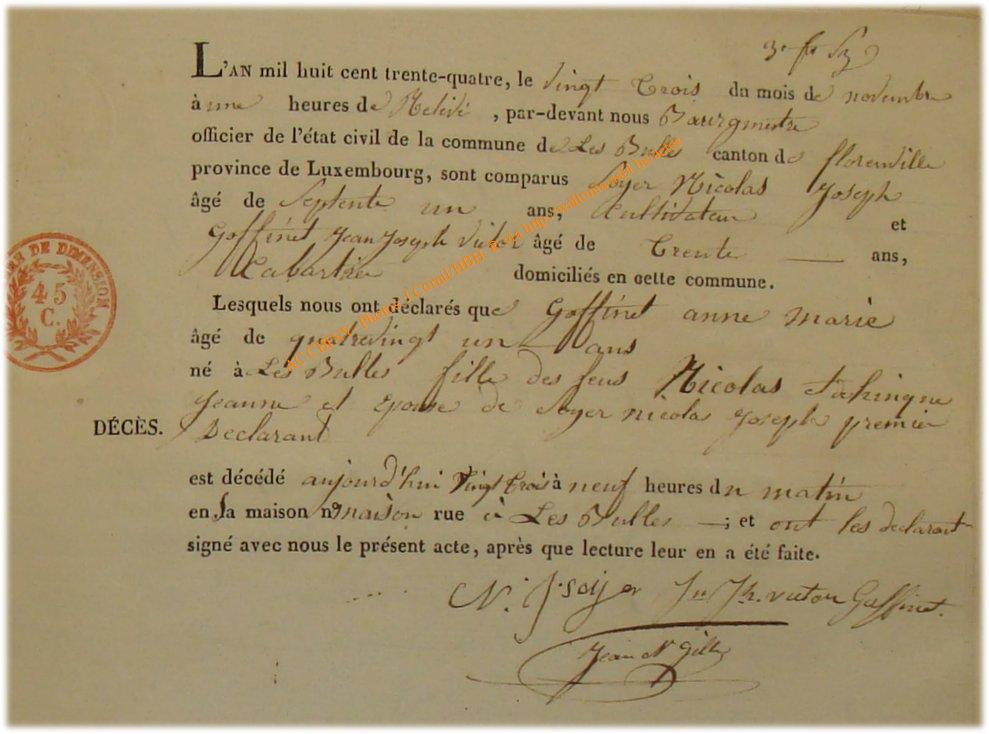 L'AN mil huit cent trente-quatre, le vingt trois du mois de novembre
à une heures de Relevé, par-devant nous Bourgmestre
officier de l'état civil de la commune de Les Bulles canton de florenville
province de Luxembourg, sont comparus Soyer Nicolas Joseph
âgé de Septente un ans, Cultivateur et
Goffinet Jean Joseph Victor âgé de Trente — ans,
Cabartier domiciliés en cette commune.
Lesquels nous ont déclarés que Goffinet anne marie
âgé de quatrevingt un ans
né à Les Bulles fille des feus Nicolas
Jeanne et Epouse de Soyer nicolas Joseph premier
DÉCÈS. Declarant
est décédé aujourd'hui vingt trois à neuf heures du matin
en Sa maison n° maison rue à Les Bulles —; et ont les declarant
signé avec nous le présent acte, après que lecture leur en a été faite.
N. J. Soijer Jn Jh. victor Goffinet.
Jean N Gille
DE DIMENSION
45
C.